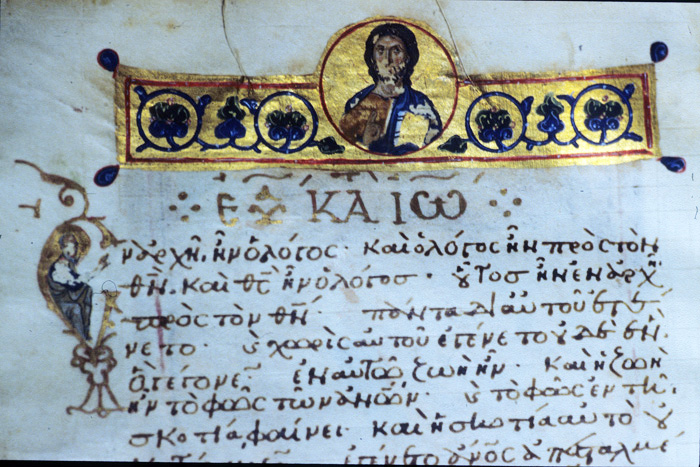 Εὐα κα Ἰω
Ἐν ἀρχῇ ἦν ὁ λόγος· καὶ ὁ λόγος ἦν πρὸς τὸν
θ̅ν̅· καὶ θ̅ς̅ ἦν ὁ λόγος· οὗτος ἦν ἐν ἀρχῇ
πρὸς τὸν θ̅ν̅· πάντα δι αὐτοῦ ἐγέ
νετο· ϗ χωρὶς αὐτοῦ ἐγένετο οὐδὲ ἕν·
ὃ γέγονεν ἐν αὐτῷ ζωὴ ἦν· καὶ ἡ ζωὴ
ἦν τὸ φῶς τῶν ἀ̅ν̅ω̅ν̅· ϗ τὸ φῶς ἐν τῇ
σκοτίᾳ φαίνει· καὶ ἡ σκοτία αὐτὸ οὐ
ἀ̅ν̅ο̅ς̅ ἀπεσταλμέ